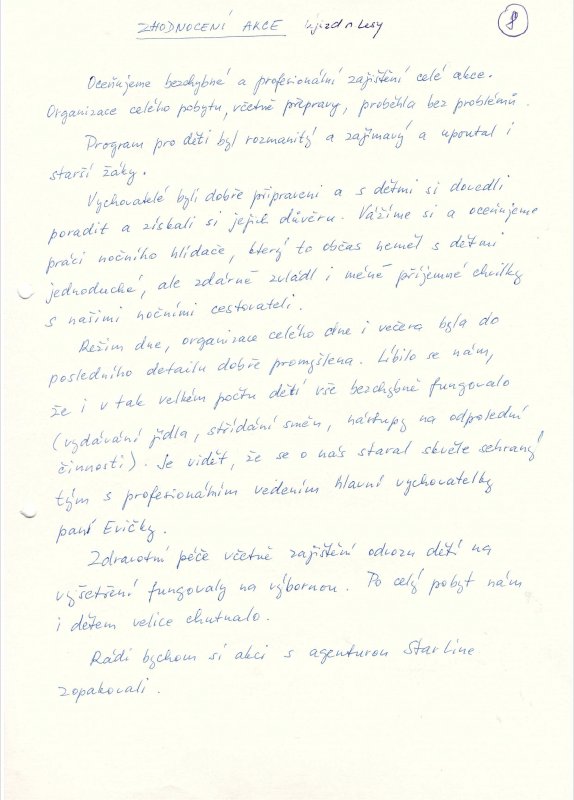 ZHODNOCENÍ AKCE Újezd n Lesy
8
Oceňujeme bezchybné a profesionální zajištění celé akce.
Organizace celého pobytu, včetně přípravy, proběhla bez problémů.
Program pro děti byl rozmanitý a zajímavý a upoutal i
starší žáky.
Vychovatelé byli dobře připraveni a s dětmi si dovedli
poradit a získali si jejich důvěru. Vážíme si a oceňujeme
práci nočního hlídače, který to občas neměl s dětmi
jednoduché, ale zdárně zvládl i méně příjemné chvilky
s našimi nočními cestovateli.
Režim dne, organizace celého dne i večera byla do
posledního detailu dobře promyšlena. Líbilo se nám,
že i v tak velkém počtu dětí vše bezchybně fungovalo
(vydávání jídla, střídání směn, nástupy na odpolední
činnosti). Je vidět, že se o nás staral skvěle sehraný
tým s profesionálním vedením hlavní vychovatelky
paní Evičky.
Zdravotní péče včetně zajištění odvozu dětí na
vyšetření fungovaly na výbornou. Po celý pobyt nám
i dětem velice chutnalo.
Rádi bychom si akci s agenturou Starline
zopakovali.